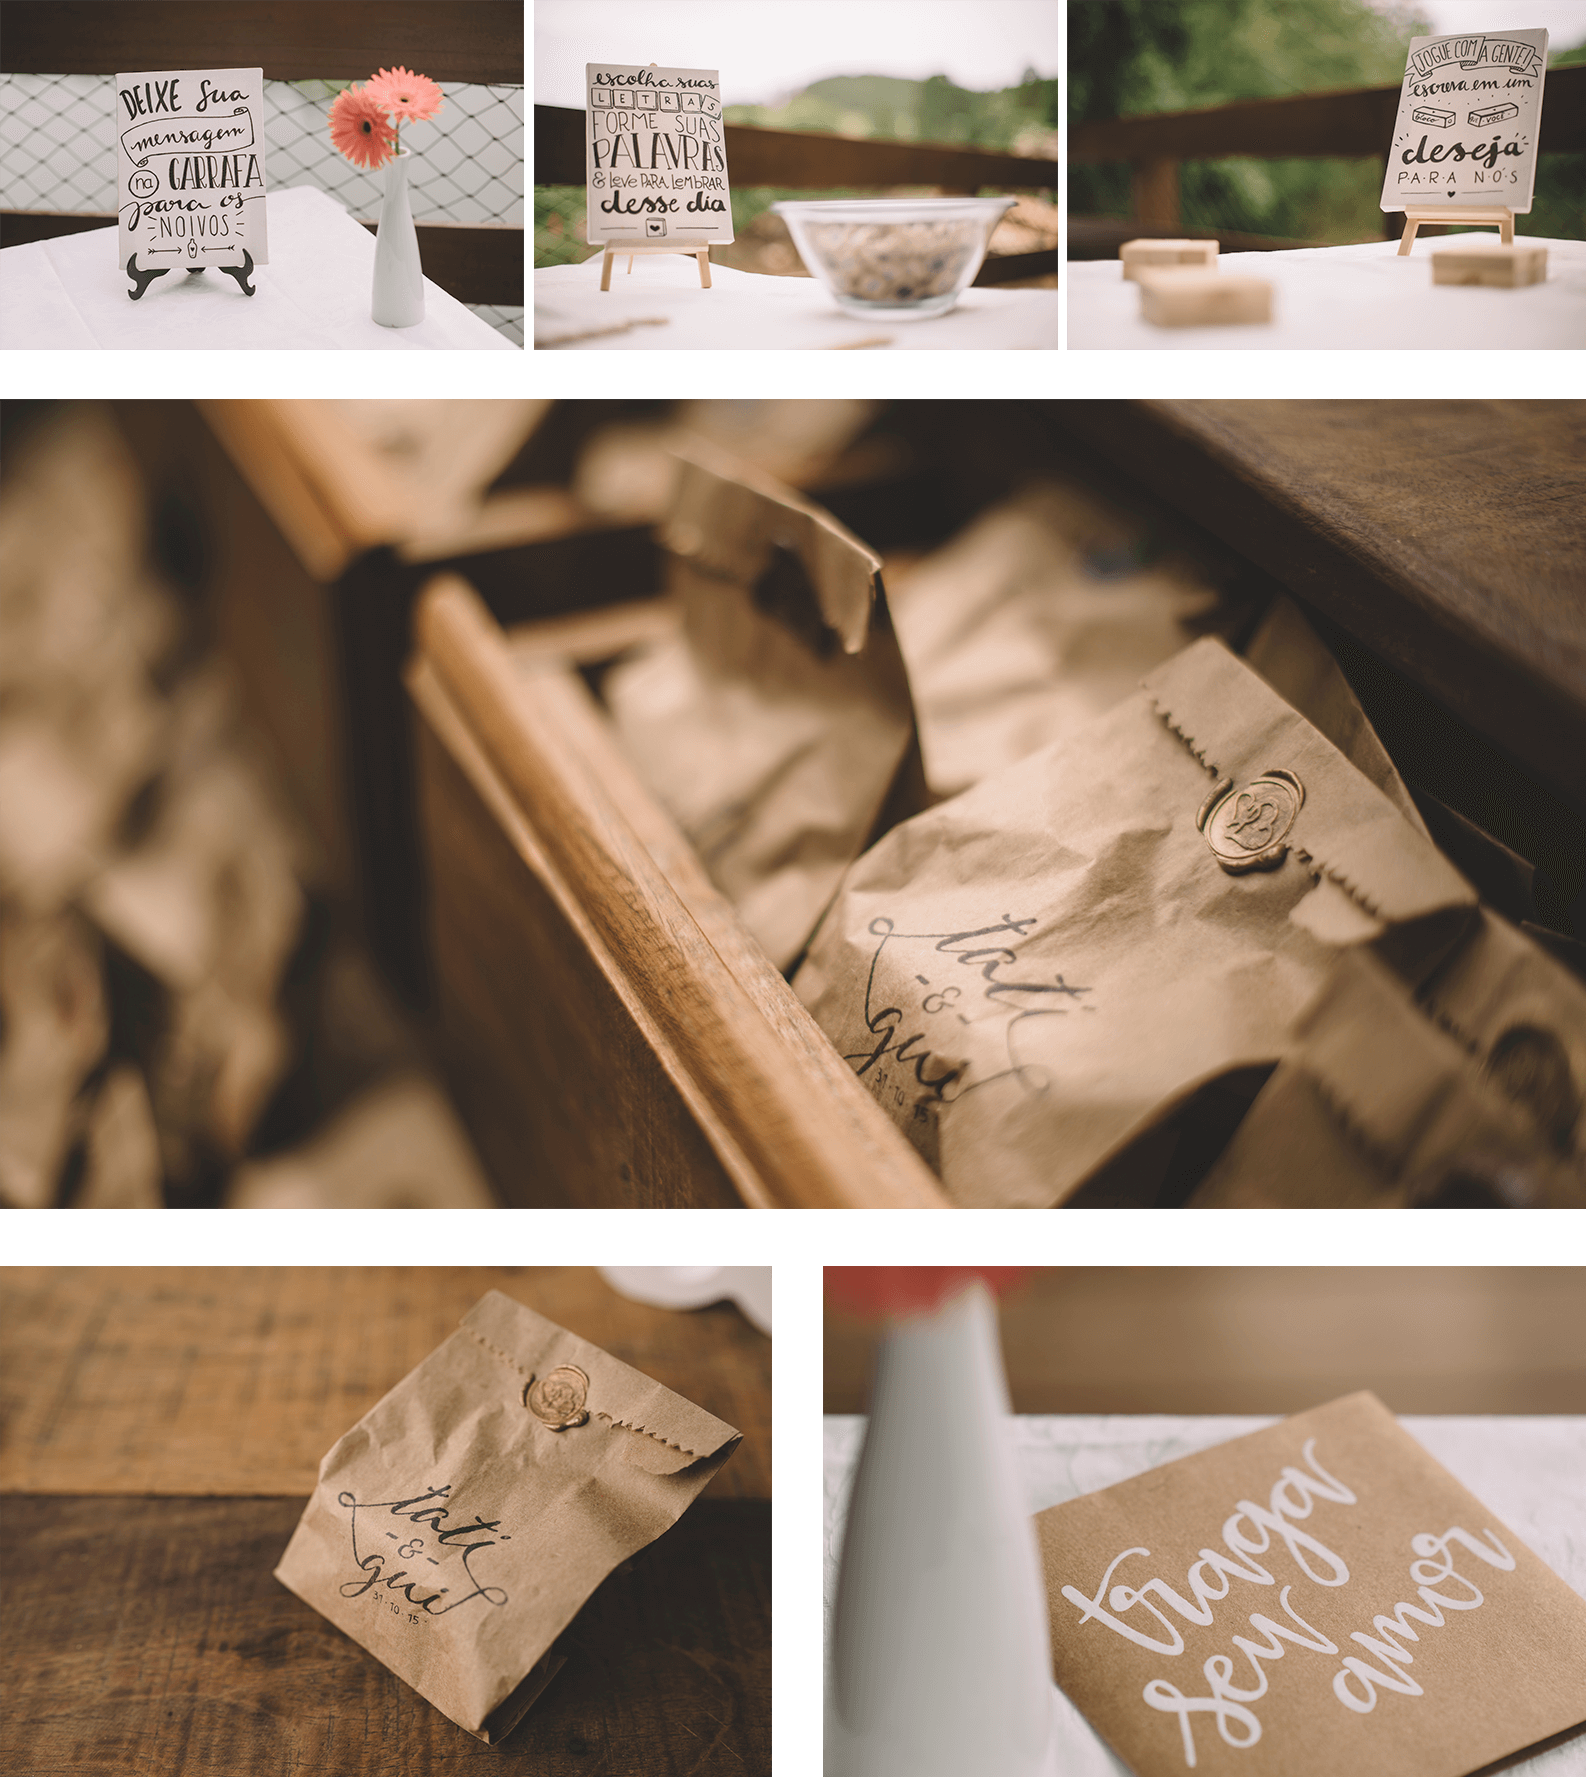 DEIXE sua
mensagem
na GARRAFA
para os
NOIVOS
escolha suas
LETRAS
FORME SUAS
PALAVRAS
& leve PARA LemBRAR
desse dia
JOGUE COM A GENTE!
escreva em um
bloco VOCÊ
deseja
PARA NÓS
tati
- & -
gui
31·10·15
tati
- & -
gui
31·10·15
traga
seu
amor